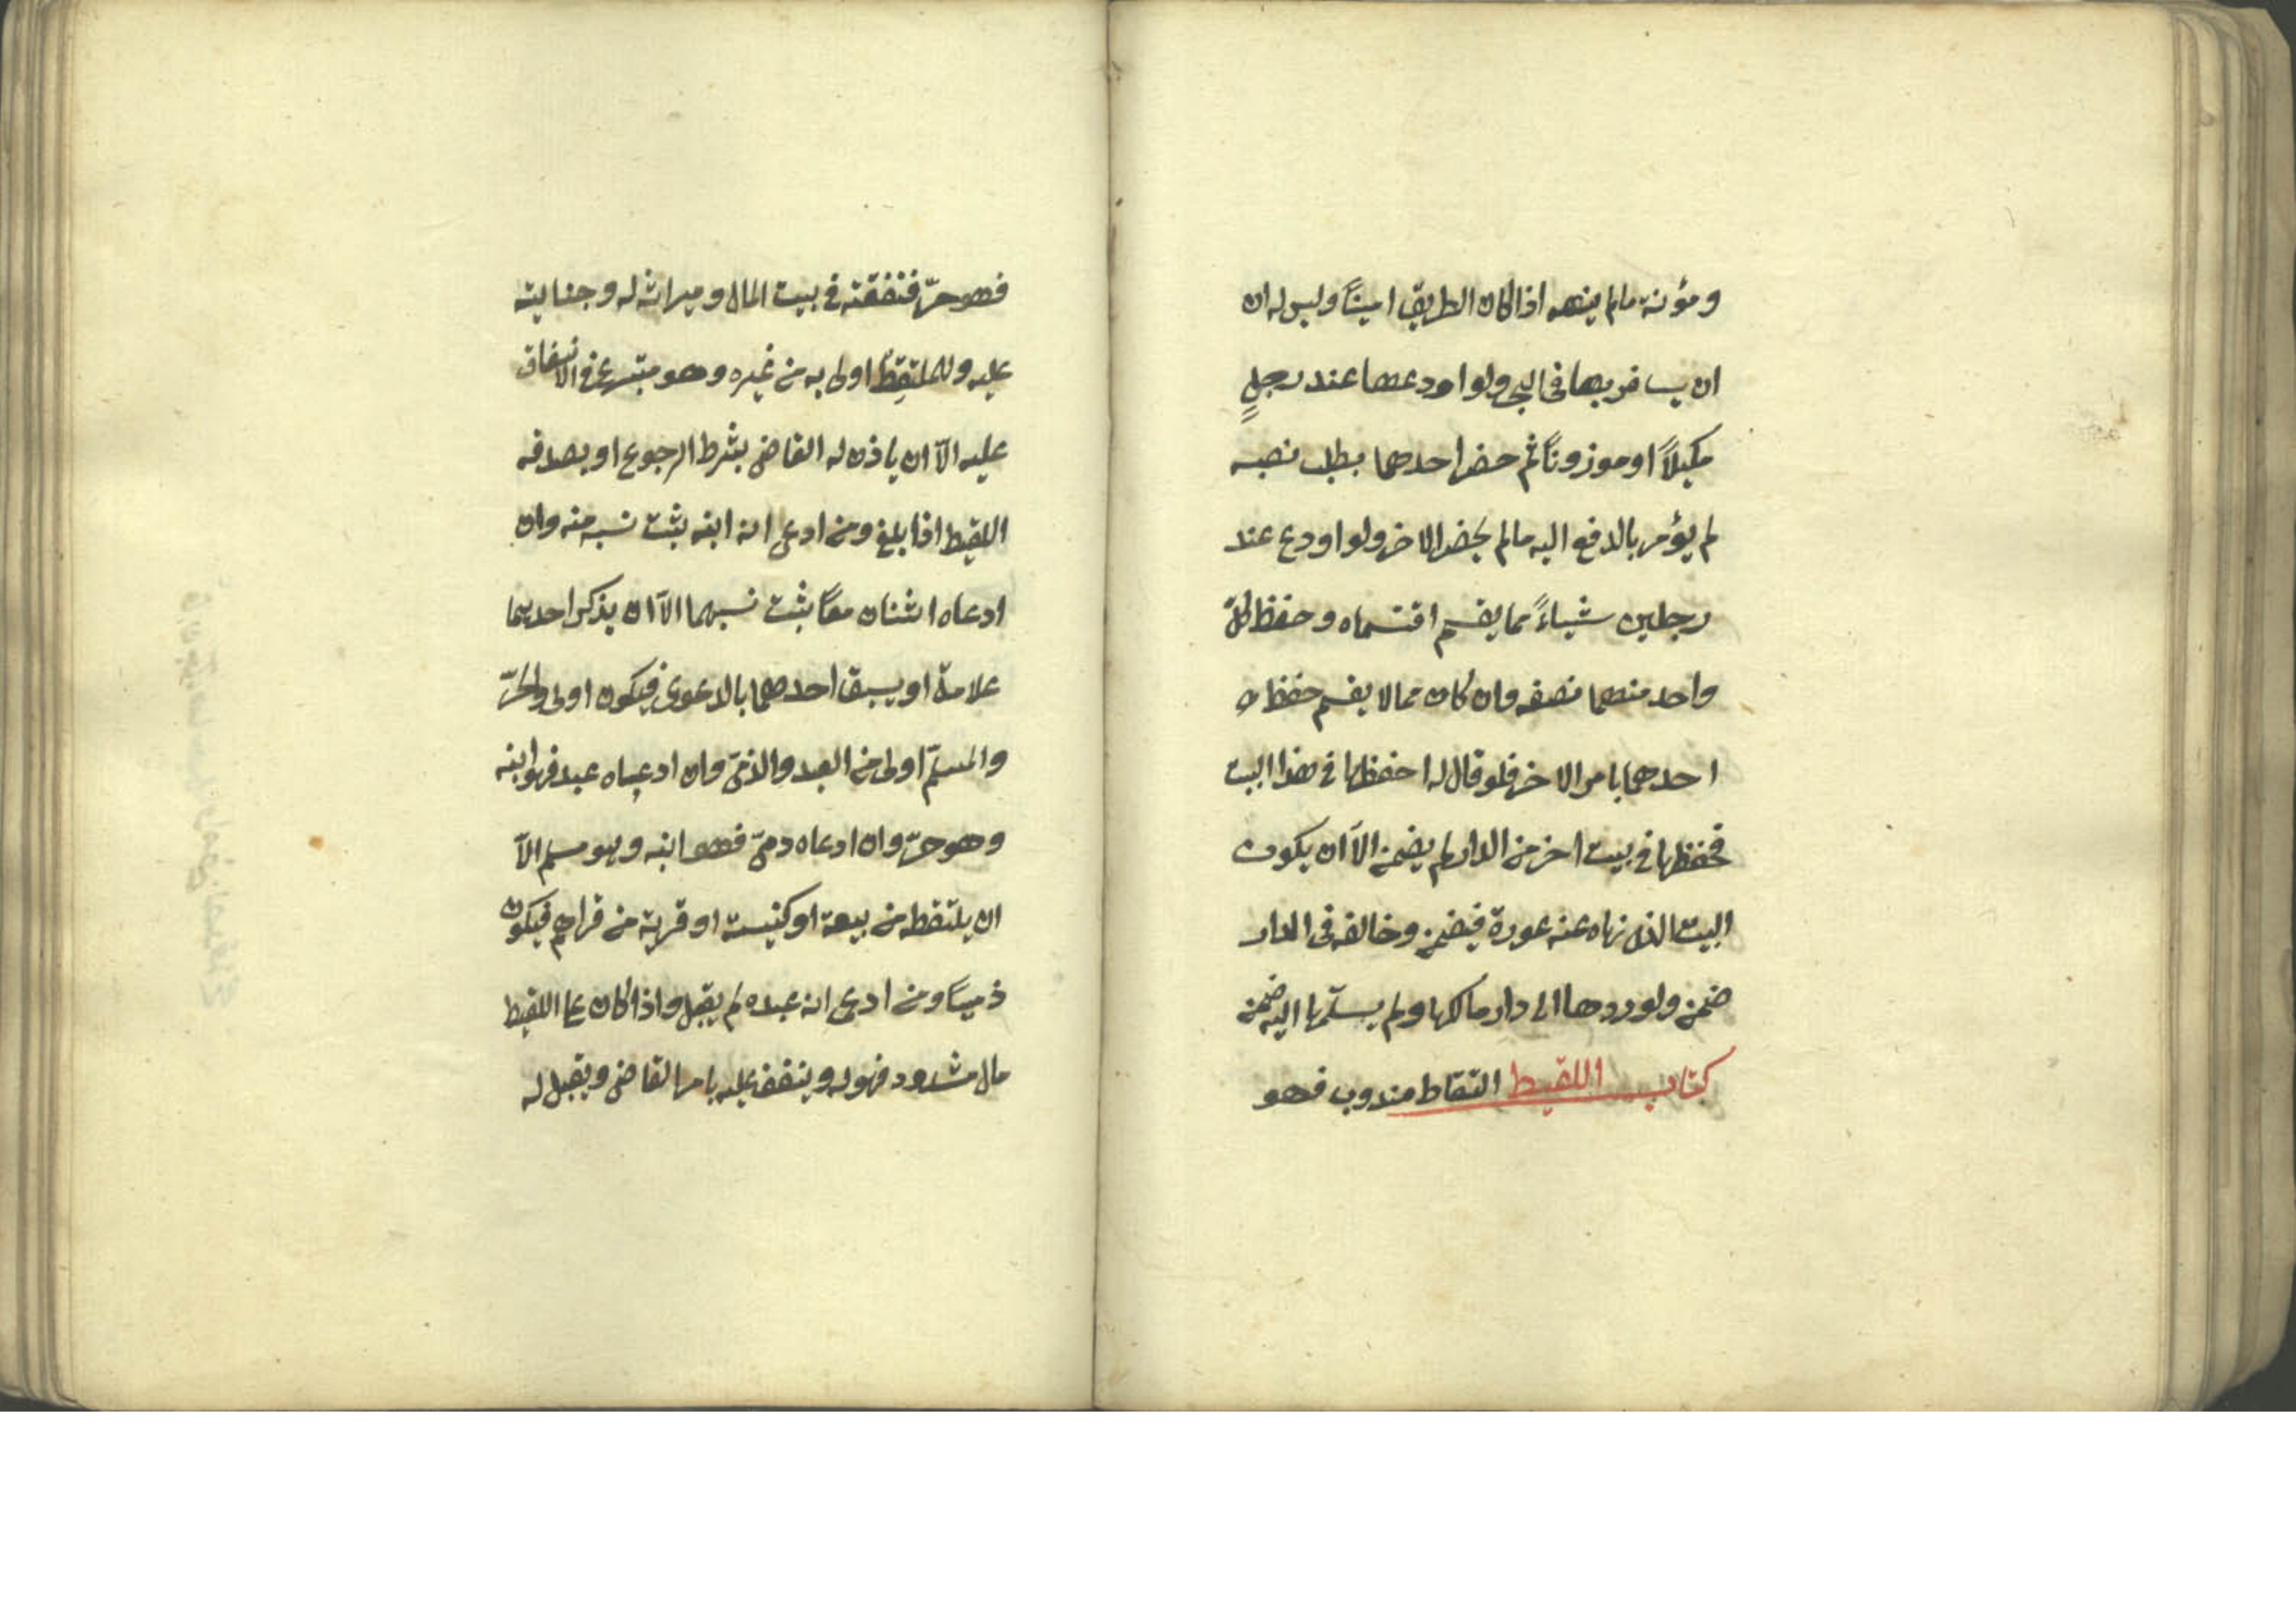 ومؤنة مالم ينهه اذا كان الطريق امينًا وليس له ان
ان يسافر بها فى البحر ولو اودعها عند رجلٍ
مكيلاً او موزونًا ثم حضر احدهما يطلب نصبه
لم يؤمر بالدفع اليه مالم يحضر الاخر ولو اودع عند
رجلين شياءً مما يقسم اقتسماه وحفظ كلّ
واحد منهما نصفه وان كان مما لا يقسم حفظه
احدهما بامر الاخر فلو قال له احفظها فى هذا البيت
فحفظها فى بيت اخر من الدار لم يضمن الاّ ان يكون
البيت الذى نهاه عنه عورة فيضمن وخالفه فى الدار
ضمن ولو ردها الى دار مالكها ولم يسلّمها اليه ضمن
كتاب اللقيط التقاط مندوب فهو
فهو حرّ فنفقته فى بيت المال وميراثه له وجنايته
عليه والملتقِطُ اولى به من غيره وهو متبرع فى الانفاق
عليه الاّ ان ياذن له القاضى بشرط الرجوع او يصدقه
اللقيط اذا بلغ ومن ادعى انه ابنه يثبت نسبه منه وان
ادعاه اثنان معًا يثبت نسبهما الاّ ان يذكر احديهما
علامة او يسبق احدهما بالدعوى فيكون اولى والحرّ
والمسلمّ اولى من العبد والذمّى وان ادعاه عبد فهو ابنه
وهو حرّ وان ادعاه دمىّ فهو ابنه وهو مسلم الاّ
ان يلتقطه من بيعة او كنيسته او قرية من قراهم فيكون
ذميًا ومن ادعى انه عبده لم يقبل واذا كان على اللقيط
مال مشدود فهو له وينفق عليه بامر القاضى ويقبل له